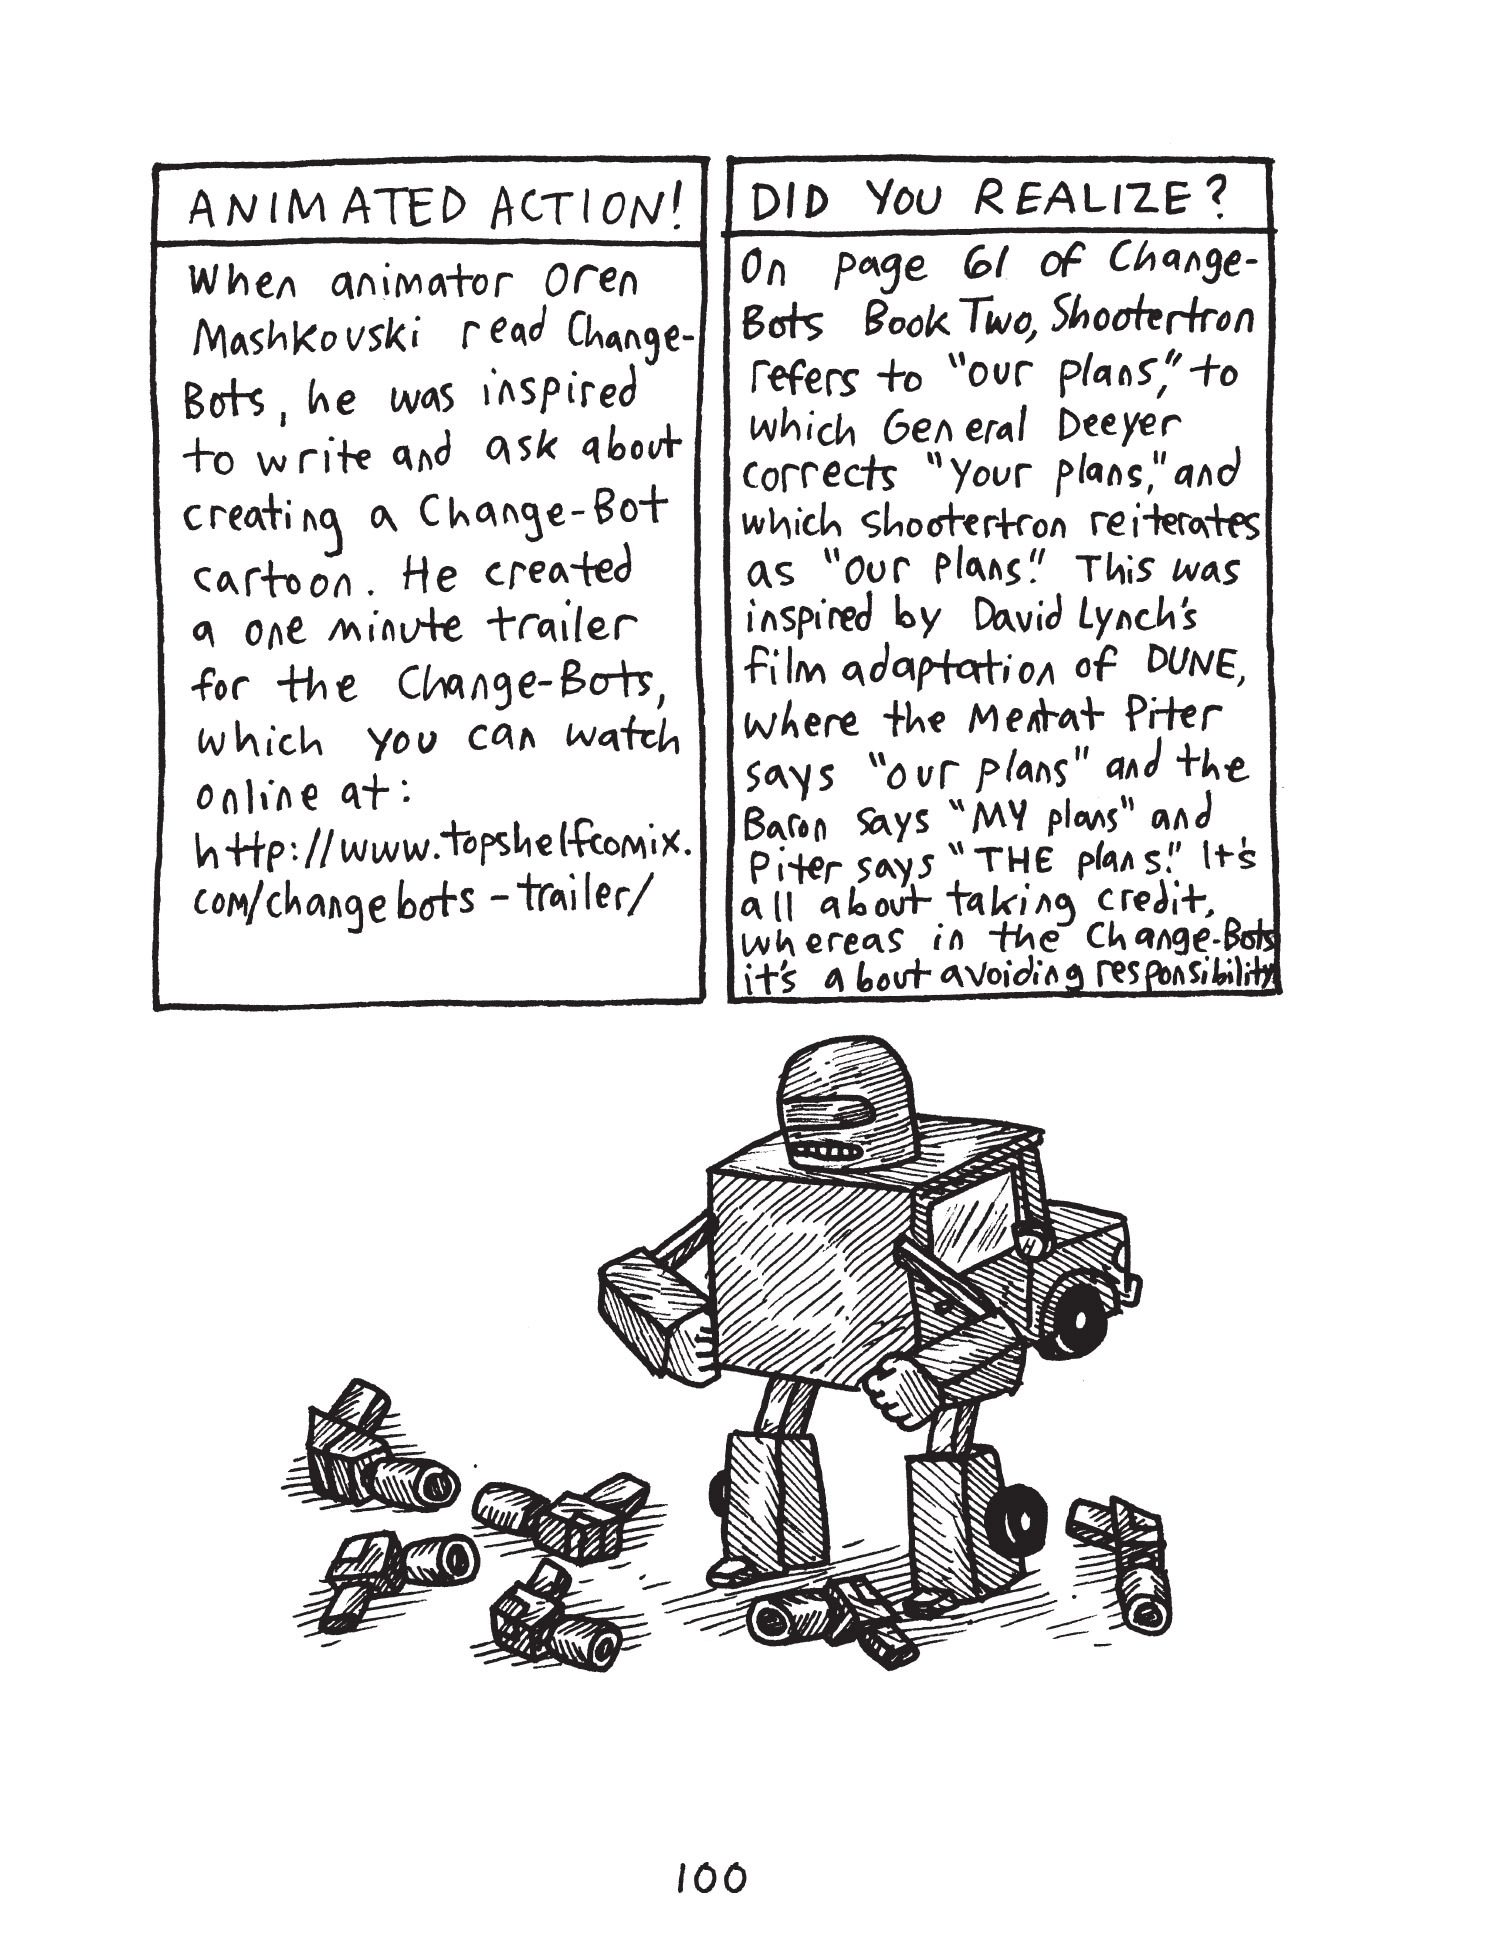 ANIMATED ACTION!
When animator Oren
Mashkovski read Change-
Bots, he was inspired
to write and ask about
creating a Change-Bot
cartoon. He created
a one minute trailer
for the Change-Bots,
which you can watch
online at:
http://www.topshelfcomix.
com/changebots-trailer/
DID YOU REALIZE?
On page 61 of Change-
Bots Book Two, Shootertron
refers to "our plans," to
which General Deeyer
corrects "Your plans," and
which Shootertron reiterates
as "Our Plans." This was
inspired by David Lynch's
film adaptation of DUNE,
where the Mentat Piter
says "our plans" and the
Baron says "MY plans" and
Piter says "THE plans." It's
all about taking credit,
whereas in the Change-Bots
it's about avoiding responsibility.
100